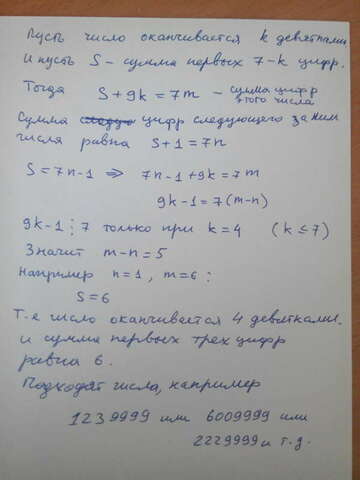 Пусть число оканчивается k девятками
и пусть S - сумма первых 7-k цифр.
Тогда S + 9k = 7m - сумма цифр
этого числа
Сумма цифр следующего за ним
числа равна S + 1 = 7n
S = 7n-1 ⇒ 7n-1+9k = 7m
9k-1 = 7(m-n)
9k-1 ⋮ 7 только при k=4 (k ≤ 7)
Значит m-n = 5
Например n=1, m=6 :
S = 6
Т-е число оканчивается 4 девятками.
и сумма первых трех цифр
равна 6.
Подходят числа, например
1239999 или 6009999 или
2229999 и т.д.